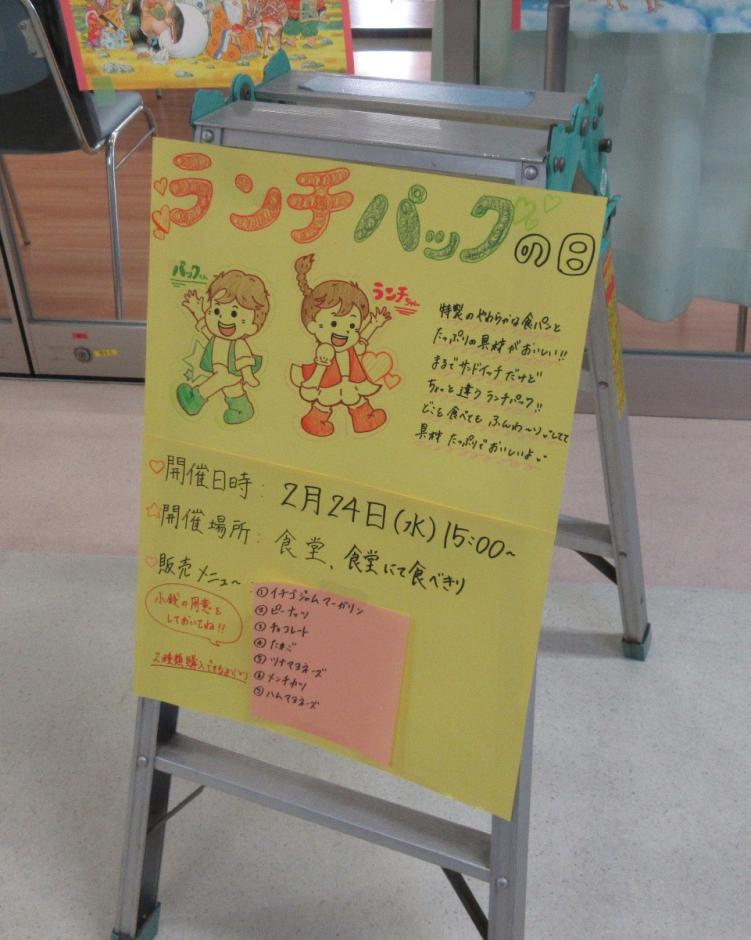 ランチパックの日
パックくん
ランチちゃん
特製のやわらかな食パンと
たっぷりの具材がおいしい!!
まるでサンドイッチだけど
ちょっと違うランチパック!!
どこを食べてもふんわ〜りしてて
具材たっぷりでおいしいよ
♡開催日時: 2月24日(水)15:00~
☆開催場所: 食堂、食堂にて食べきり
♡販売メニュー:
小銭の用意を
しておいてね!!
2種類購入できるよ
①イチゴジャムマーガリン
②ピーナッツ
③チョコレート
④たまご
⑤ツナマヨネーズ
⑥メンチカツ
⑦ハムマヨネーズ